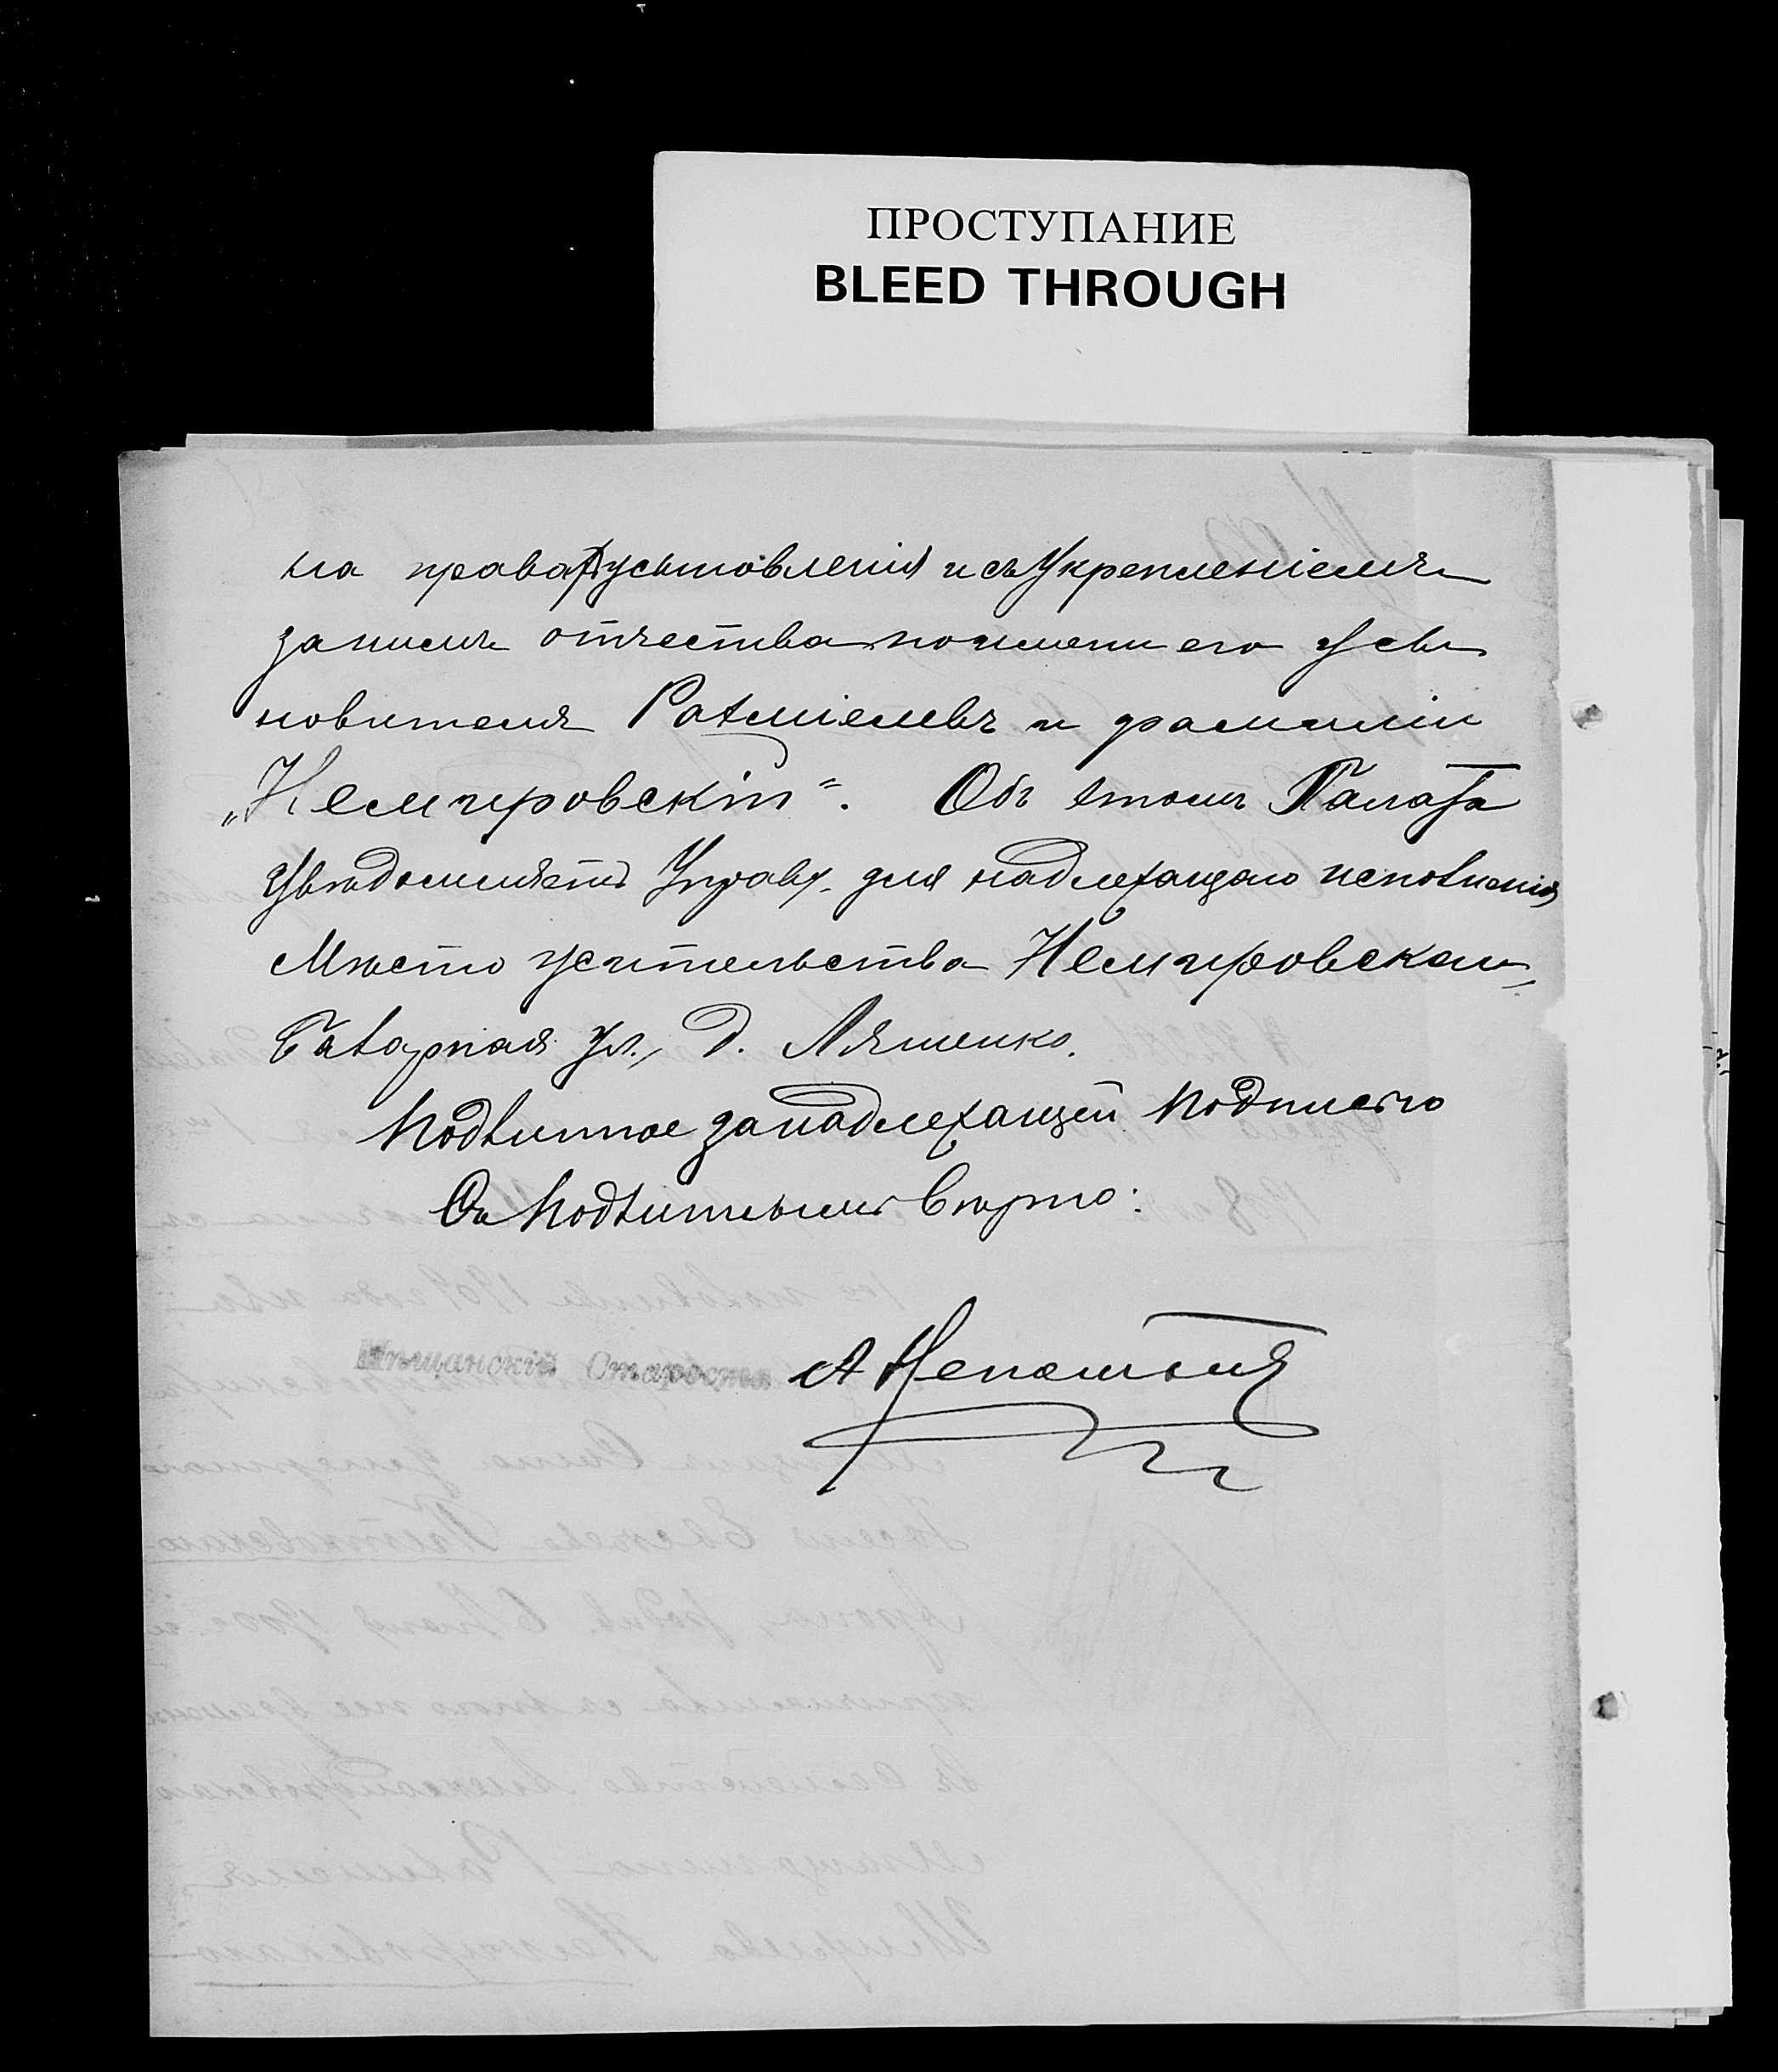 ПРОСТУПАНИЕ
BLEED THROUGH
на права усыновленія и съ укрепленіемъ
за нимъ отчества по имени его усы
новителя Рахміелевъ и фамиліи
„Немировскій“. Объ этомъ Палата
увѣдомляетъ Управу для надлежащаго исполненія
Мѣсто жительства Немировскаго
Базарная ул., д. Ляшенко.
Подлинное за надлежащей подписью
Съ подлиннымъ вѣрно:
Мѣщанскій Староста А